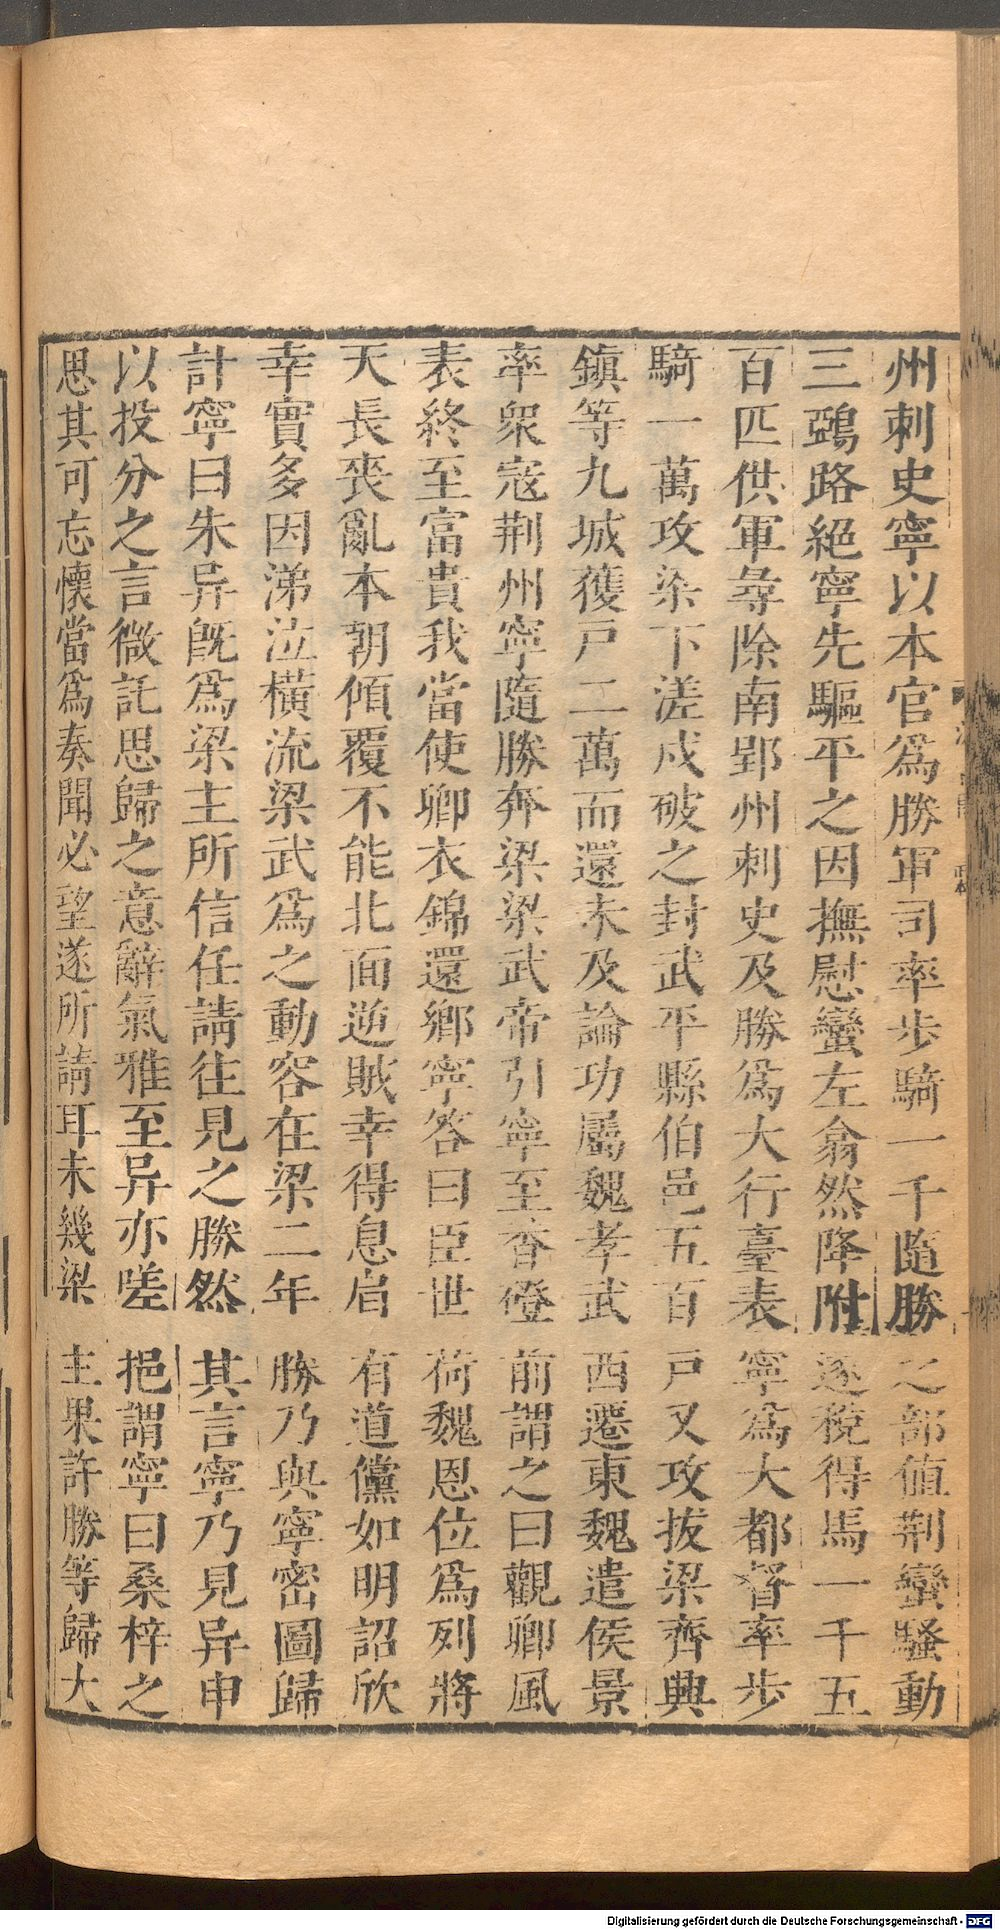 州刺史寧以本官爲勝軍司率歩騎一千隨勝之部值荆蠻騷動
三鵶路絕寧先驅平之因撫慰蠻左翕然降附遂稅得馬一千五
百匹供軍尋除南郢州刺史及勝爲大行臺表寧爲大都督率歩
騎一萬攻梁下溠戍破之封武平縣伯邑五百戸又攻拔梁齊興
鎮等九城獲戸二萬而還未及論功屬魏孝武西遷東魏遣侯景
率衆寇荆州寧隨勝奔梁梁武帝引寧至香磴前謂之曰觀卿風
表終至富貴我當使卿衣錦還鄉寧答曰臣世荷魏恩位爲列將
天長喪亂本朝傾覆不能北面逆賊幸得息肩有道儻如明詔欣
幸實多因涕泣橫流梁武爲之動容在梁二年勝乃與寧密圖歸
計寧曰朱异旣爲梁主所信任請往見之勝然其言寧乃見异申
以投分之言微託思歸之意辭氣雅至异亦嗟挹謂寧曰桑梓之
思其可忘懷當爲奏聞必望遂所請耳未幾梁主果許勝等歸大
Digitalisierung gefördert durch die Deutsche Forschungsgemeinschaft - DFG